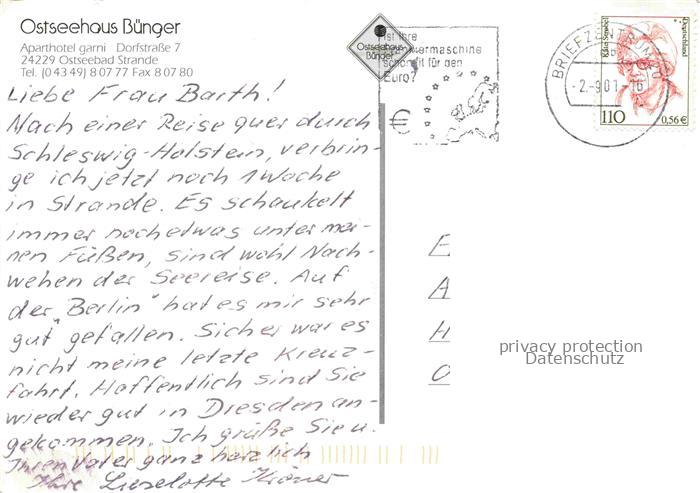 Ostseehaus Bünger
Aparthotel garni Dorfstraße 7
24229 Ostseebad Strande
Tel. (0 43 49) 8 07 77 Fax 8 07 80
Liebe Frau Barth!
Nach einer Reise quer durch
Schleswig-Holstein, verbrin-
ge ich jetzt noch 1 Woche
in Strande. Es schaukelt
immer noch etwas unter mei-
nen Füßen, sind wohl Nach-
wehen der Seereise. Auf
der „Berlin" hat es mir sehr
gut gefallen. Sicher war es
nicht meine letzte Kreuz-
fahrt. Hoffentlich sind Sie
wieder gut in Dresden an-
gekommen. Ich grüße Sie u.
Ihren Vater ganz herzlich
Ihre Lieselotte
Ostseehaus
Bünger
Ist Ihre
maschine
schon fit für den
Euro?
€
BRIEFZENTRUM
-2.-9.01.-16
Käte Strobel
Deutschland
110
0,56 €
E
A
H
O
privacy protection
Datenschutz